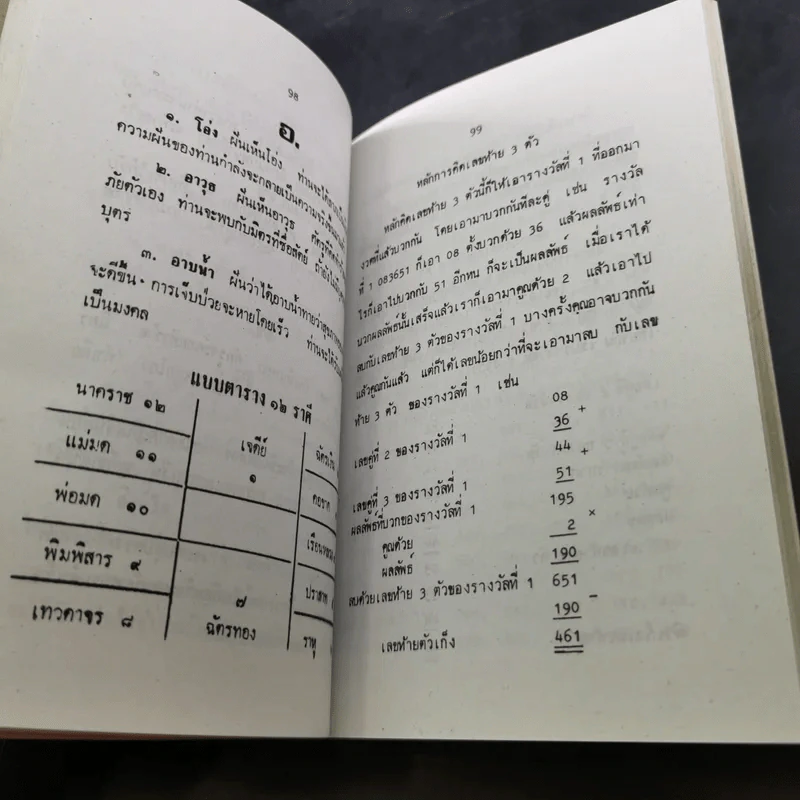 98
อ.
๑. โอ่ง ฝันเห็นโอ่ง ท่านจะได้
ความฝันของท่านกำลังจะกลายเป็นความจริง
๒. อาวุธ ฝันเห็นอาวุธ ศัตรู
ภัยตัวเอง ท่านจะพบกับมิตรที่ซื่อสัตย์ ถ้ายังไม่
บุตร
๓. อาบน้ำ ฝันว่าได้อาบน้ำทายว่า
จะดีขึ้น การเจ็บป่วยจะหายโดยเร็ว ท่านจะได้
เป็นมงคล
แบบตาราง ๑๒ ราศี
นาคราช ๑๒
แม่มด ๑๑
เจดีย์
๑
ฉัตรเงิน
พ่อมด ๑๐
คอขาด
เรือนหลวง
พิมพิสาร ๙
ปราสาท
เทวดาจร ๘
๗
ฉัตรทอง
ราหู
99
หลักการคิดเลขท้าย 3 ตัว
หลักคิดเลขท้าย 3 ตัวนี้ก็ให้เอารางวัลที่ 1 ที่ออกมา
งวดที่แล้วบวกกัน โดยเอามาบวกกันทีละคู่ เช่น รางวัล
ที่ 1 083651 ก็เอา 08 ตั้งบวกด้วย 36 แล้วผลลัพธ์เท่า
ไรก็เอาไปบวกกับ 51 อีกหน ก็จะเป็นผลลัพธ์ เมื่อเราได้
บวกผลลัพธ์นั้นเสร็จแล้วเราก็เอามาคูณด้วย 2 แล้วเอาไป
ลบกับเลขท้าย 3 ตัวของรางวัลที่ 1 บางครั้งคุณอาจบวกกัน
แล้วคูณกันแล้ว แต่ก็ได้เลขน้อยกว่าที่จะเอามาลบ กับเลข
ท้าย 3 ตัว ของรางวัลที่ 1 เช่น
08
+
เลขคู่ที่ 2 ของรางวัลที่ 1 36
44
+
เลขคู่ที่ 3 ของรางวัลที่ 1 51
ผลลัพธ์ที่บวกของรางวัลที่ 1 195
×
คูณด้วย 2
ผลลัพธ์ 190
ลบด้วยเลขท้าย 3 ตัวของรางวัลที่ 1 651
−
190
เลขท้ายตัวเก็ง 461